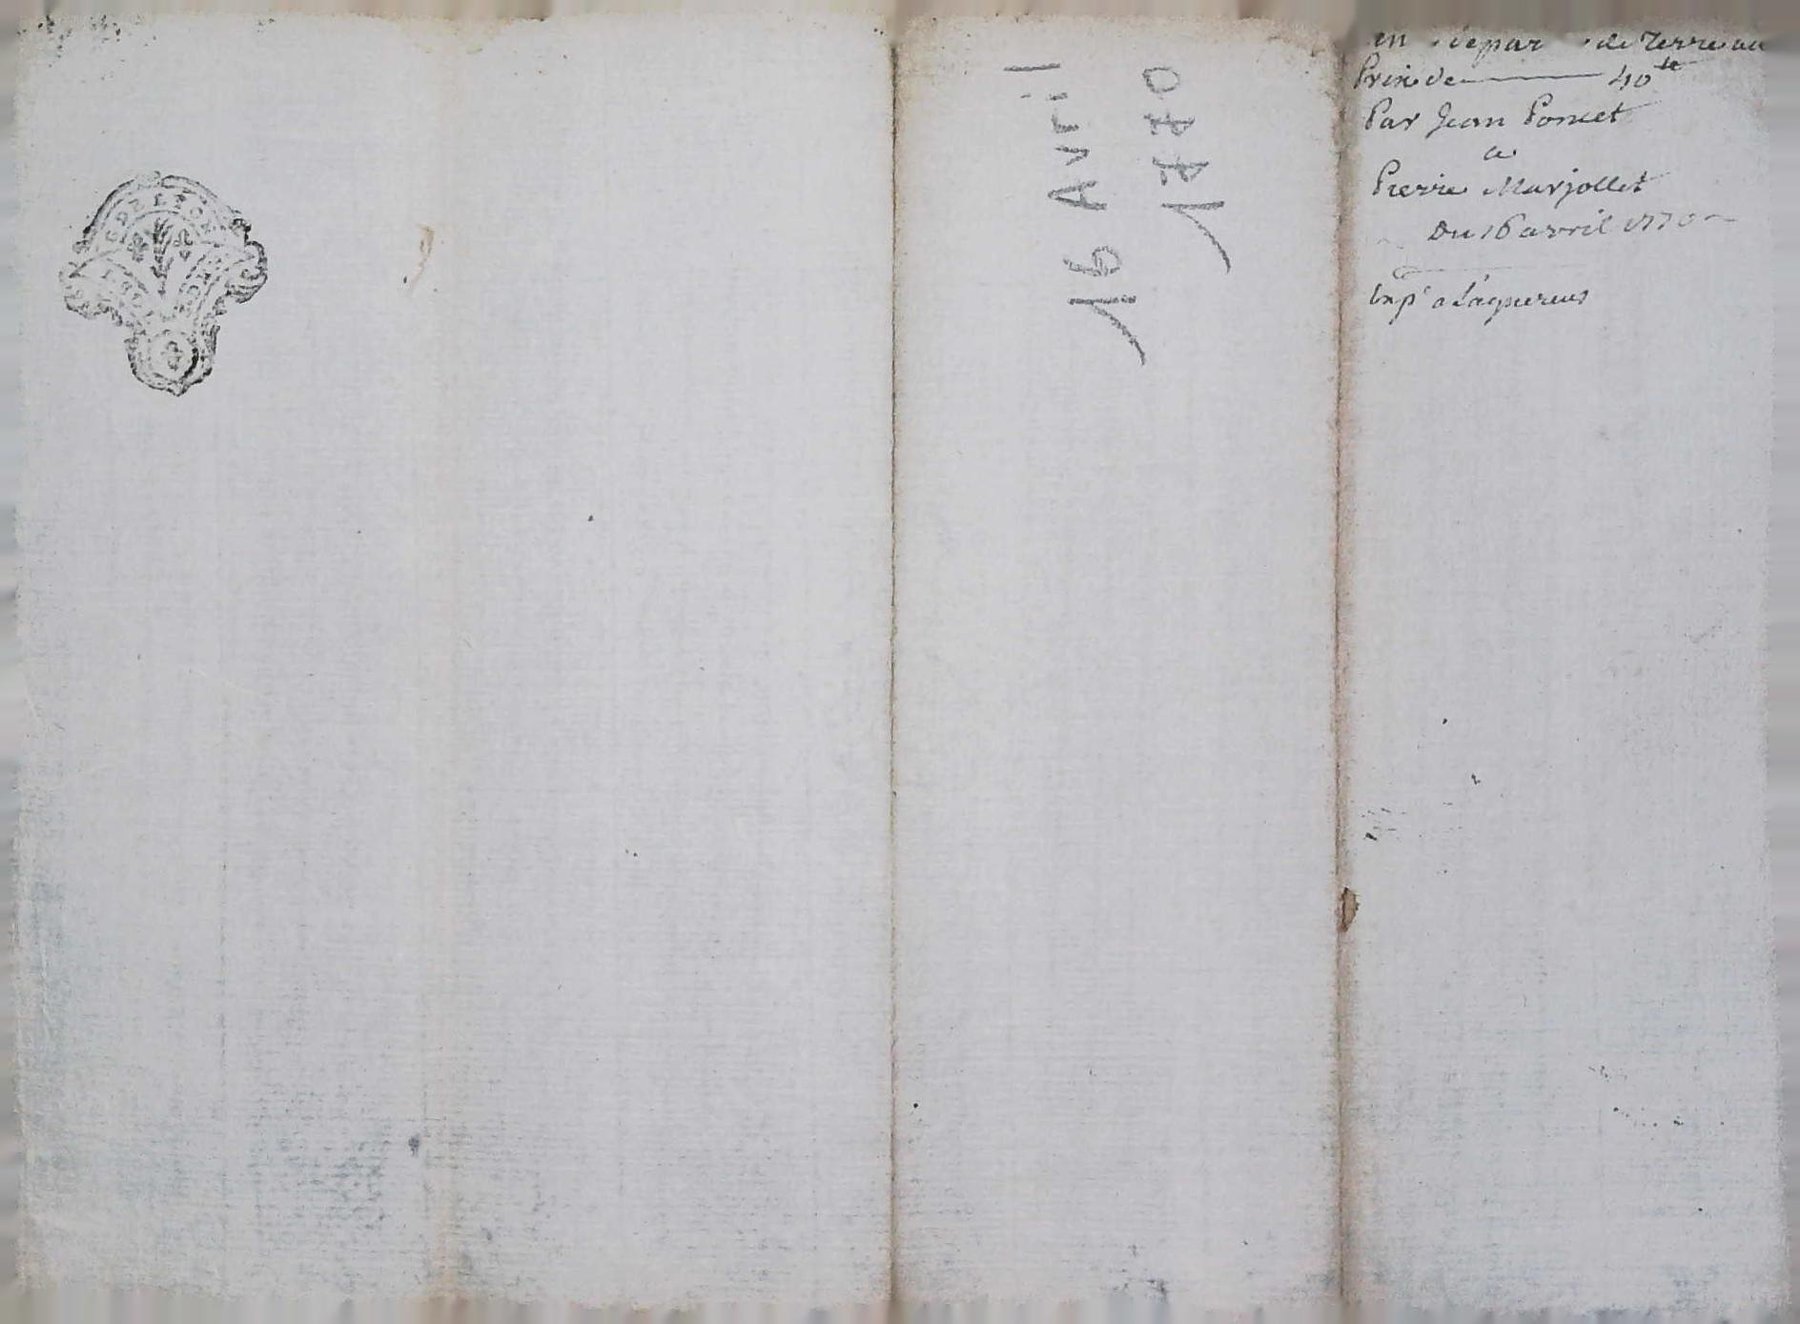 16 Avril
1770
en de terre au
Prix de 40 tt
Par Jean Poncet
a
Pierre Marjollet
Du 16 avril 1770
Exp a